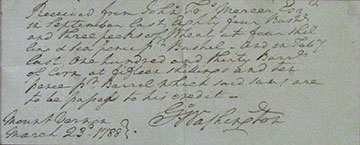 Received from John Fs. Mercer Esqr.
in September last, Eighty four Bushls.
and three pecks of Wheat at four Shil
lgs & six pence pr. Bushel - And in Feby.
last, One hundred and thirty Barrls.
of Corn at fifteen shillings and six
pence pr. Barrel which said sums are
to be passed to his credit -
Go: Washington
Mount Vernon
March 23d. 1788